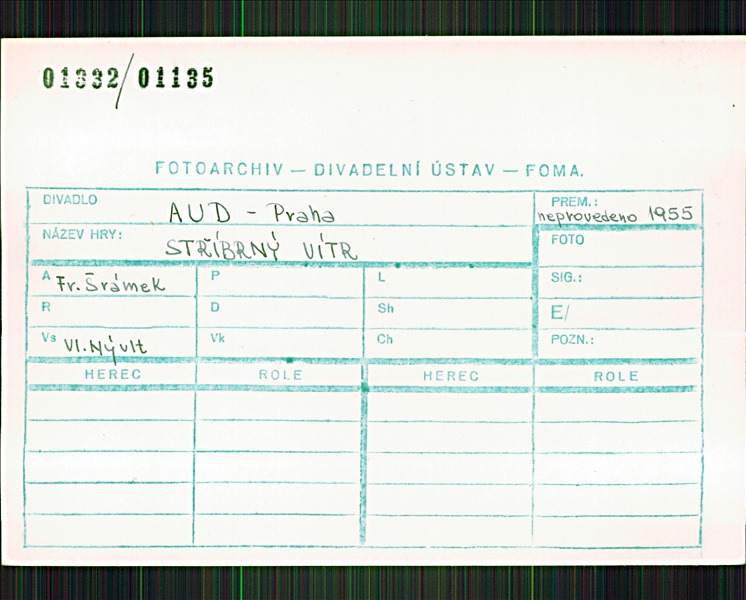 01332/01135
FOTOARCHIV — DIVADELNÍ ÚSTAV — FOMA.
DIVADLO AUD - Praha
PREM.: neprovedeno 1955
NÁZEV HRY: STŘÍBRNÝ VÍTR
FOTO
A Fr. Šrámek P L SIG.:
R D Sh E/
Vs Vl. Nývlt Vk Ch POZN.:
HEREC ROLE HEREC ROLE